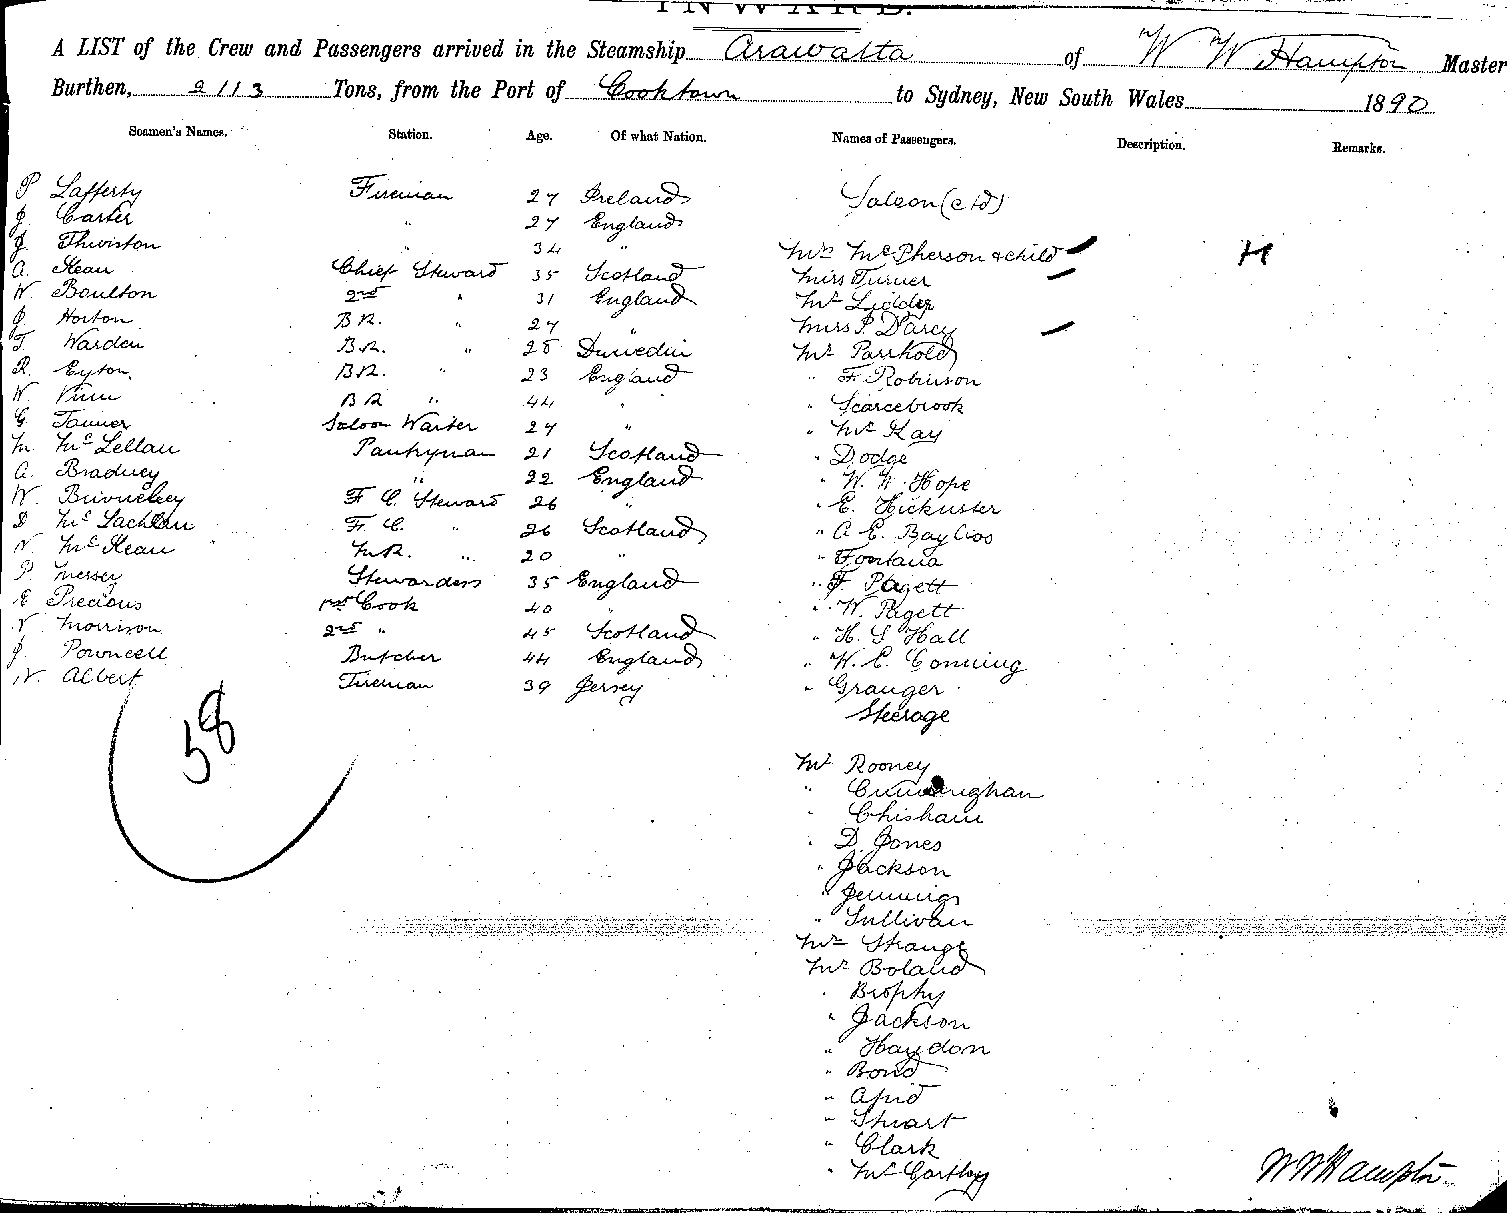 INWARD.
A LIST of the Crew and Passengers arrived in the Steamship Arawatta of W W Hampton Master
Burthen, 2113 Tons, from the Port of Cooktown to Sydney, New South Wales 1890
Seamen's Names. Station. Age. Of what Nation. Names of Passengers. Description. Remarks.
P Lafferty Fireman 27 Ireland Saloon (ctd)
J. Carter " 27 England
J. Thwiston " 34 " Mrs McPherson & child H
A. Kean Chief Steward 35 Scotland Miss Turner
W. Boulton 2nd " 31 England Mr
J Horton BR. " 27 " Miss P. Darcy
T. Warden B.R. " 28 Dunedin Mr
R. Eyton BR. " 23 England " F Robinson
W. B R " 44 " " Scarcebrook
G. Tanner Saloon Waiter 24 " " McKay
M. McLellan Pantryman 21 Scotland " Dodge
A. Bradney " 22 England " W. H. Hope
W. F. C. Steward 26 " " E.
D McLachlan F. C. " 26 Scotland " A E. Bayliss
N. McKean M.R. " 20 " " Fontana
P. Mersey Stewardess 35 England " F. Pagett
E Precious 1st Cook 40 " " W. Pagett
N. Morrison 2nd " 45 Scotland " H. S Hall
J. Powncell Butcher 44 England " W. E. Conning
N. Albert Fireman 39 Jersey " Granger
58
Steerage
Mr Rooney
" Cunninghan
" Chisham
" D. Jones
" Jackson
" Jennings
" Sullivan
Mrs Strange
Mr Boland
" Brophy
" Jackson
" Haydon
" Bond
"
" Stuart
" Clark
" McCarthy
W W Hampton